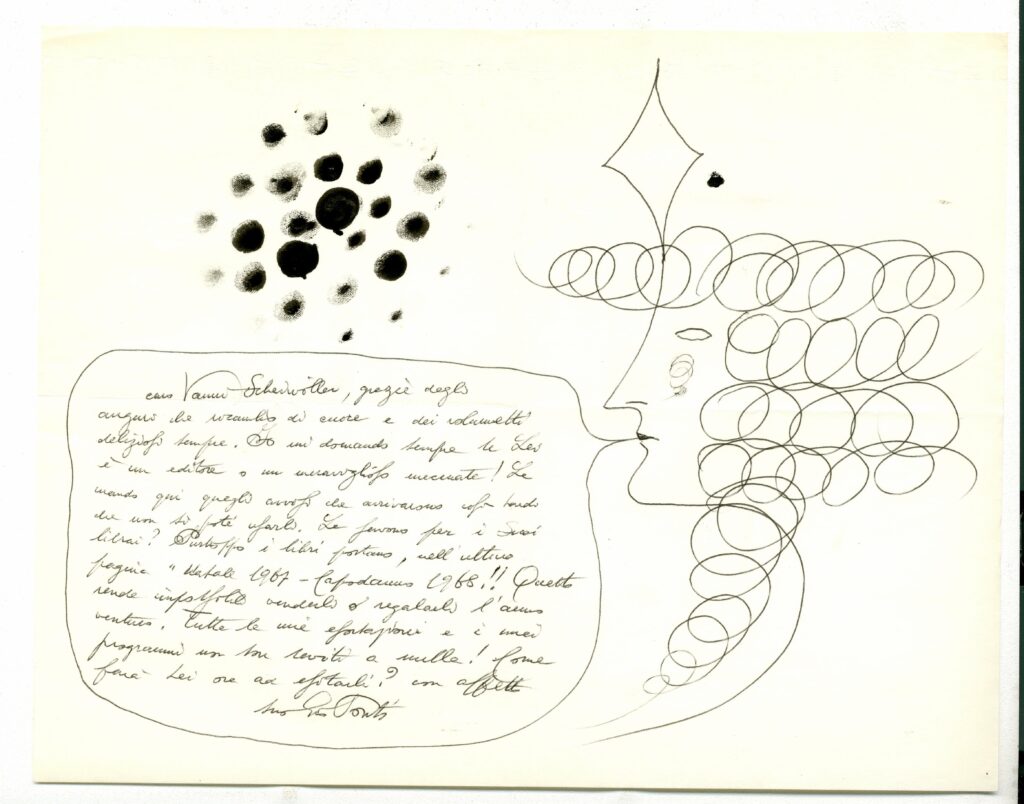 caro Vanni Scheiwiller, grazie degli
auguri che ricambio di cuore e dei volumetti
deliziosi sempre. Io mi domando sempre se Lei
è un editore o un meraviglioso mecenate! Le
mando qui quegli avvisi che arrivarono così tardi
che non si poté usarli. Le servono per i Suoi
librai? Purtroppo i libri portano, nell'ultima
pagina "Natale 1967 - Capodanno 1968!! Questo
rende impossibile venderli o regalarli l'anno
venturo. Tutte le mie esortazioni e i miei
programmi non son serviti a nulla! Come
farà Lei ora ad esitarli? con affetto
suo Gio Ponti